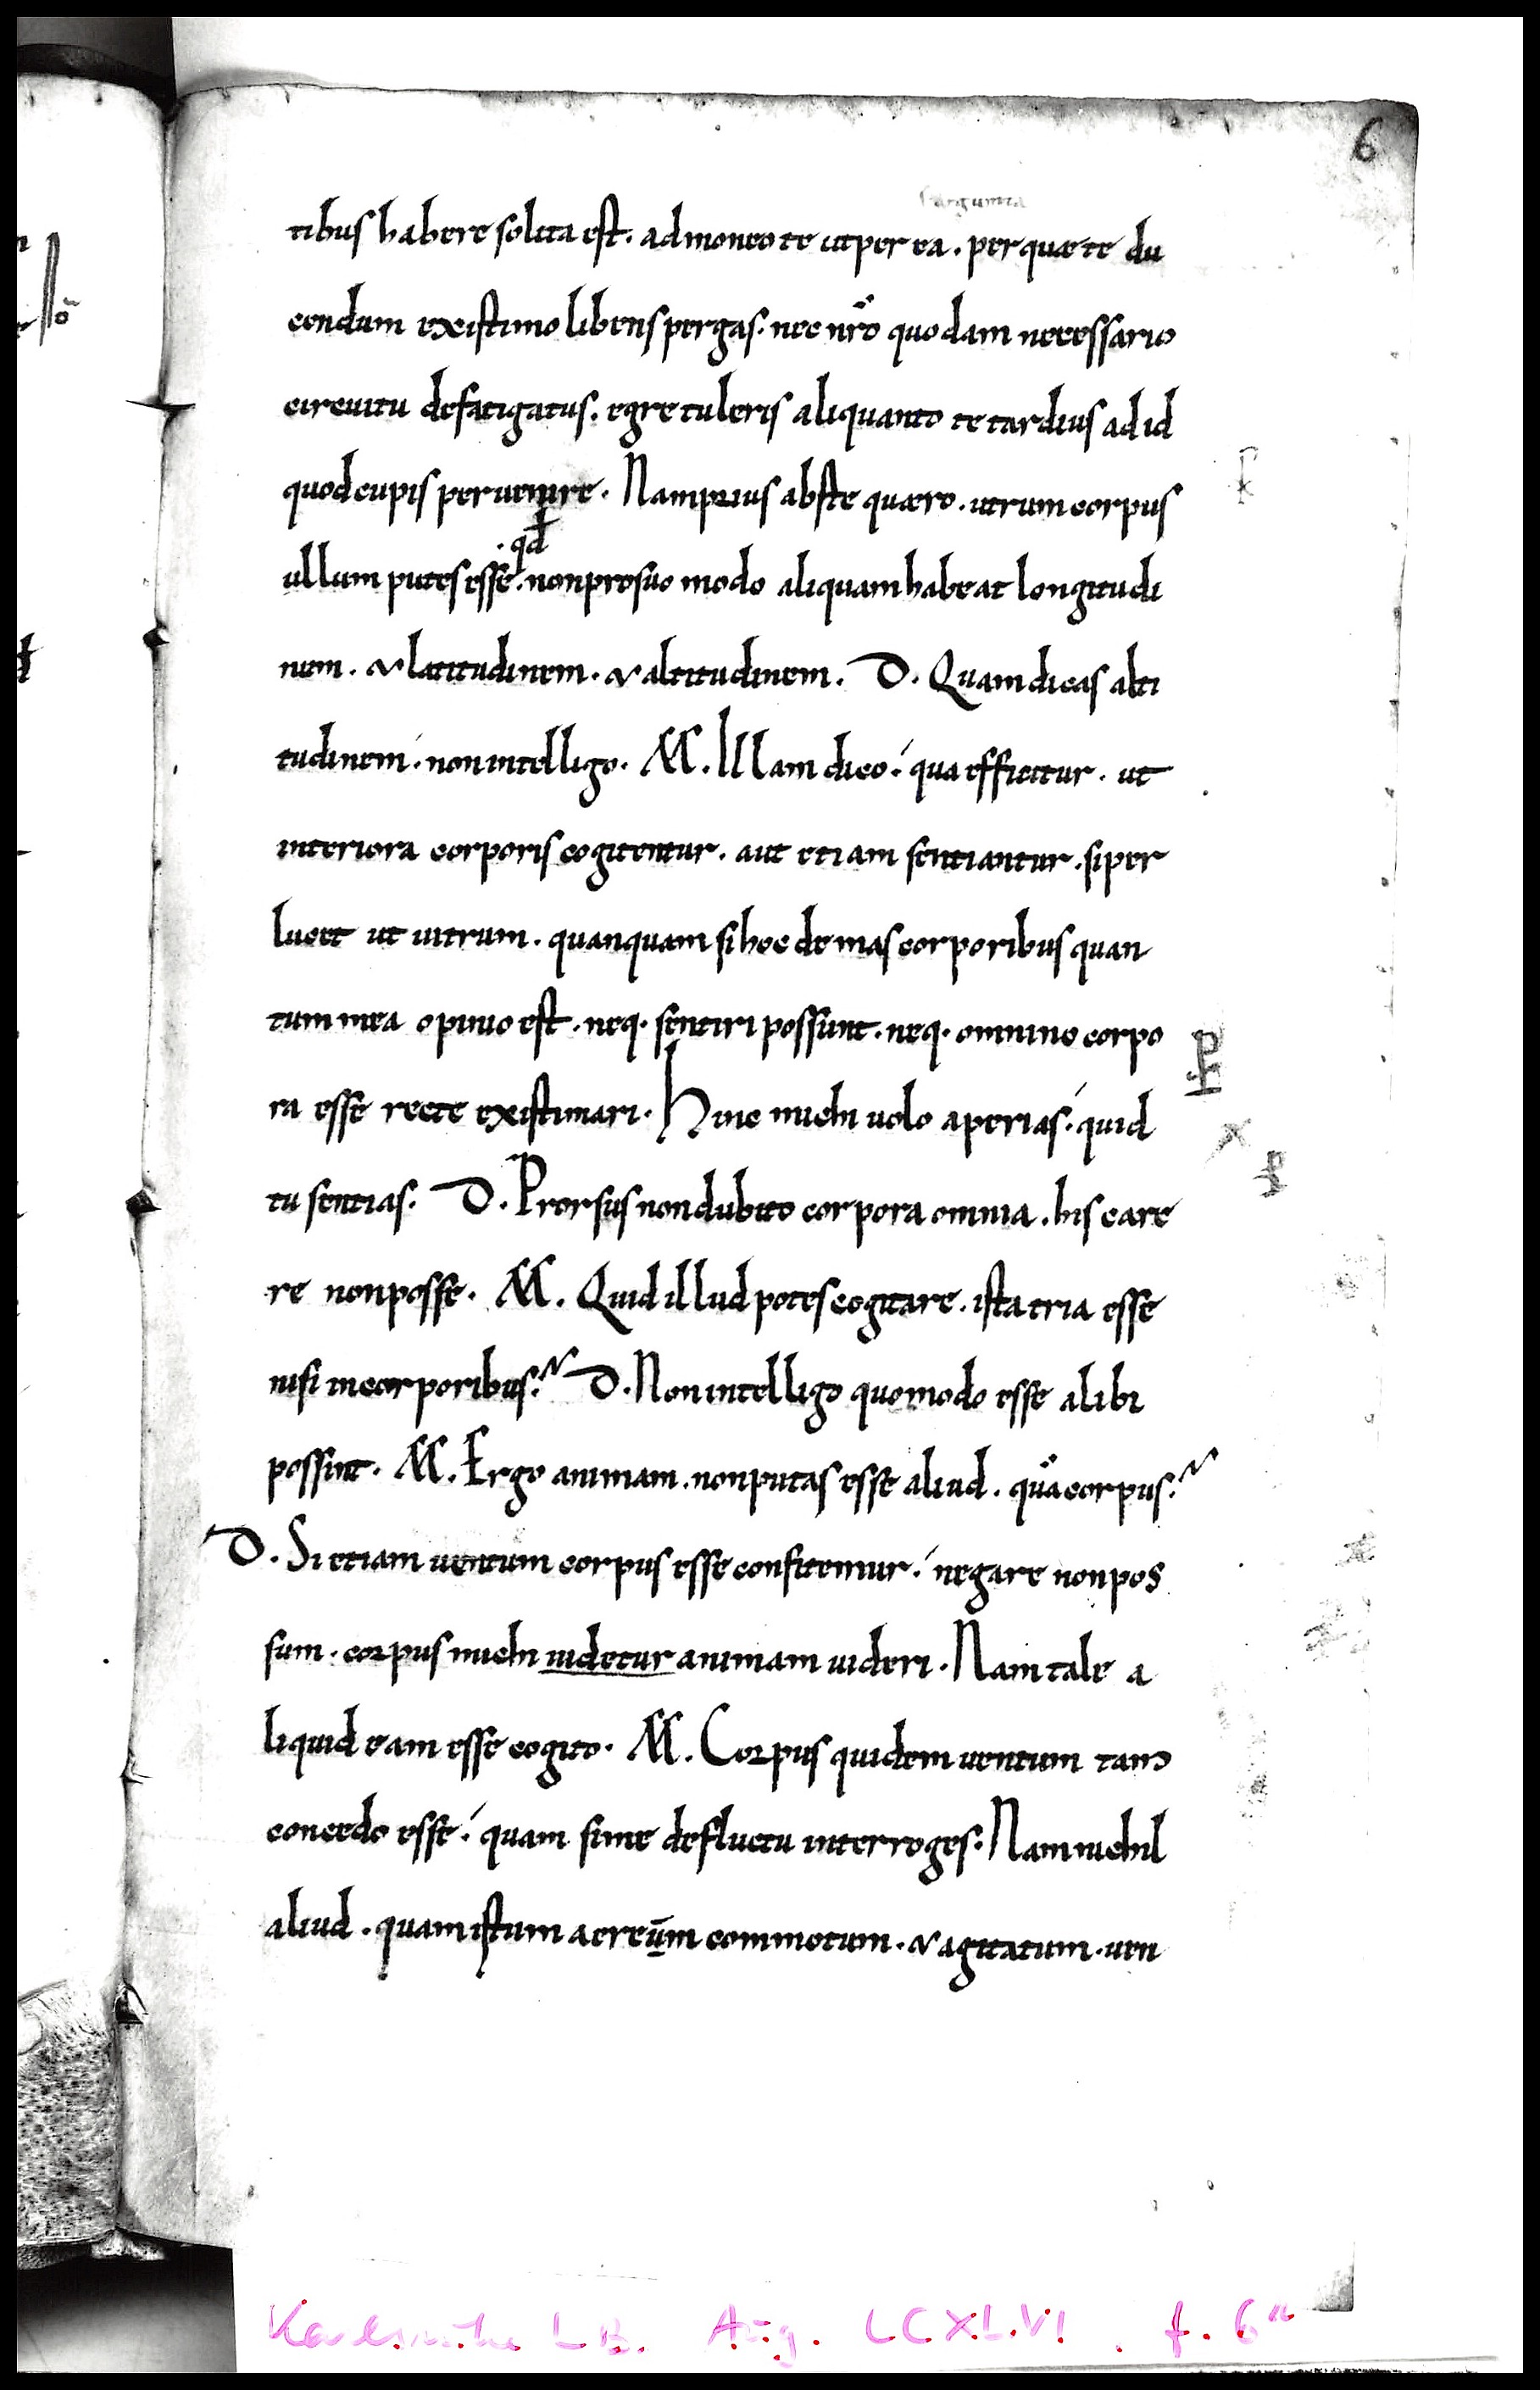 6
tibus habere solita est. admoneo te ut per ea. per quae te du
cendum existimo libens pergas. nec nr̄o quodam necessario
circuitu defatigatus. egre tuleris aliquanto te tardius ad id
quod cupis peruenire. Nam prius abs te quaero. utrum corpus
.qđ
ullum putes esse. non pro suo modo aliquam habeat longitudi
nem. & latitudinem. & altitudinem. D. Quam dicas alti
tudinem. non intelligo. M. Illam dico. qua efficitur. ut
interiora corporis cogitentur. aut etiam sentiantur. si per
lucet ut uitrum. quanquam si hoc demas corporibus quan
tum mea opinio est. neq. sentiri possunt. neq. omnino corpo
ra esse recte existimari. Hinc michi uolo aperias. quid
tu sentias. D. Prorsus non dubito corpora omnia. his care
re non posse. M. Quid illud potes cogitare. ista tria esse
nisi in corporibus? D. Non intelligo quomodo esse alibi
possint. M. Ergo animam. non putas esse aliud. quā corpus?
D. Si etiam uentum corpus esse confitemur. negare non pos
sum. corpus michi uidetur animam uideri. Nam tale a
liquid eam esse cogito. M. Corpus quidem uentum tam
concedo esse. quam si me de fluctu interroges. Nam nichil
aliud. quam istum aereūm commotum. & agitatum. uen
Karlsruhe LB. Aug. LCXLVI. f. 6ʳ